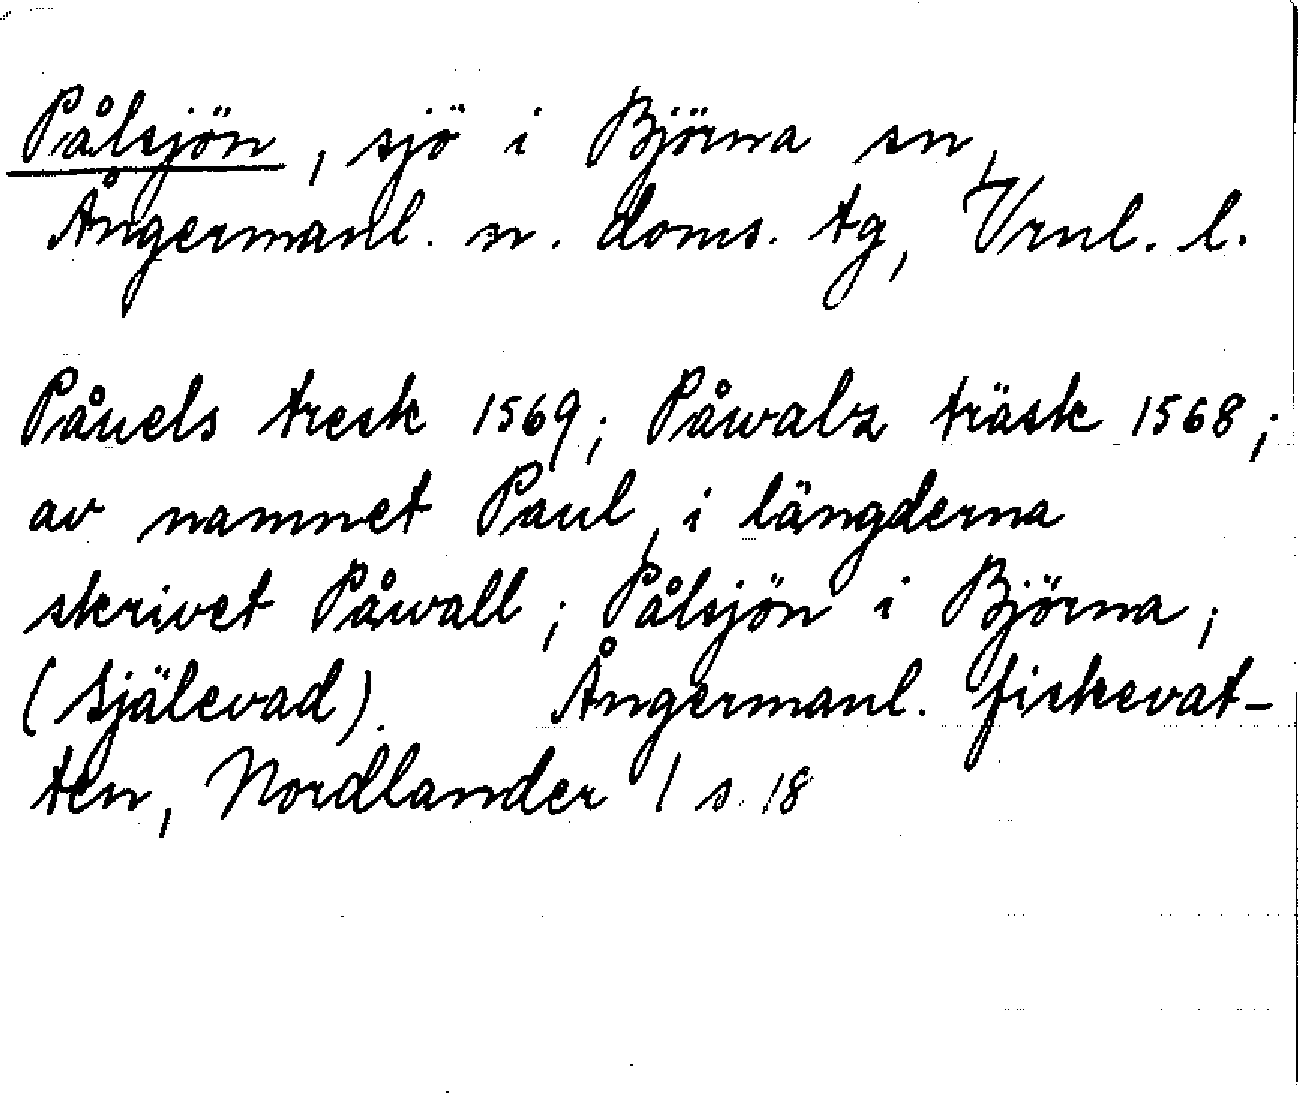 Pålsjön, sjö i Björna sn,
Ångermanl. n. doms. tg, Vrnl. l.
Påuels tresk 1569; Påwalz träsk 1568;
av namnet Paul, i längderna
skrivet Påwall; Pålsjön i Björna;
(Själevad). Ångermanl. fiskevat-
ten, Nordlander 1 s. 18